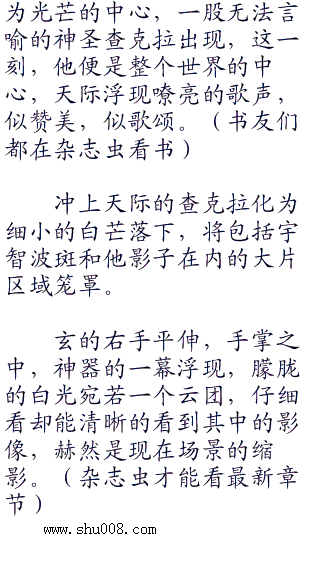 为光芒的中心，一股无法言
喻的神圣查克拉出现，这一
刻，他便是整个世界的中
心，天际浮现嘹亮的歌声，
似赞美，似歌颂。（书友们
都在杂志虫看书）
冲上天际的查克拉化为
细小的白芒落下，将包括宇
智波斑和他影子在内的大片
区域笼罩。
玄的右手平伸，手掌之
中，神器的一幕浮现，朦胧
的白光宛若一个云团，仔细
看却能清晰的看到其中的影
像，赫然是现在场景的缩
影。（杂志虫才能看最新章
节）
www.shu008.com